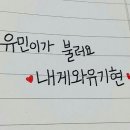 유민이가 불러요
♥내게와유기현♥